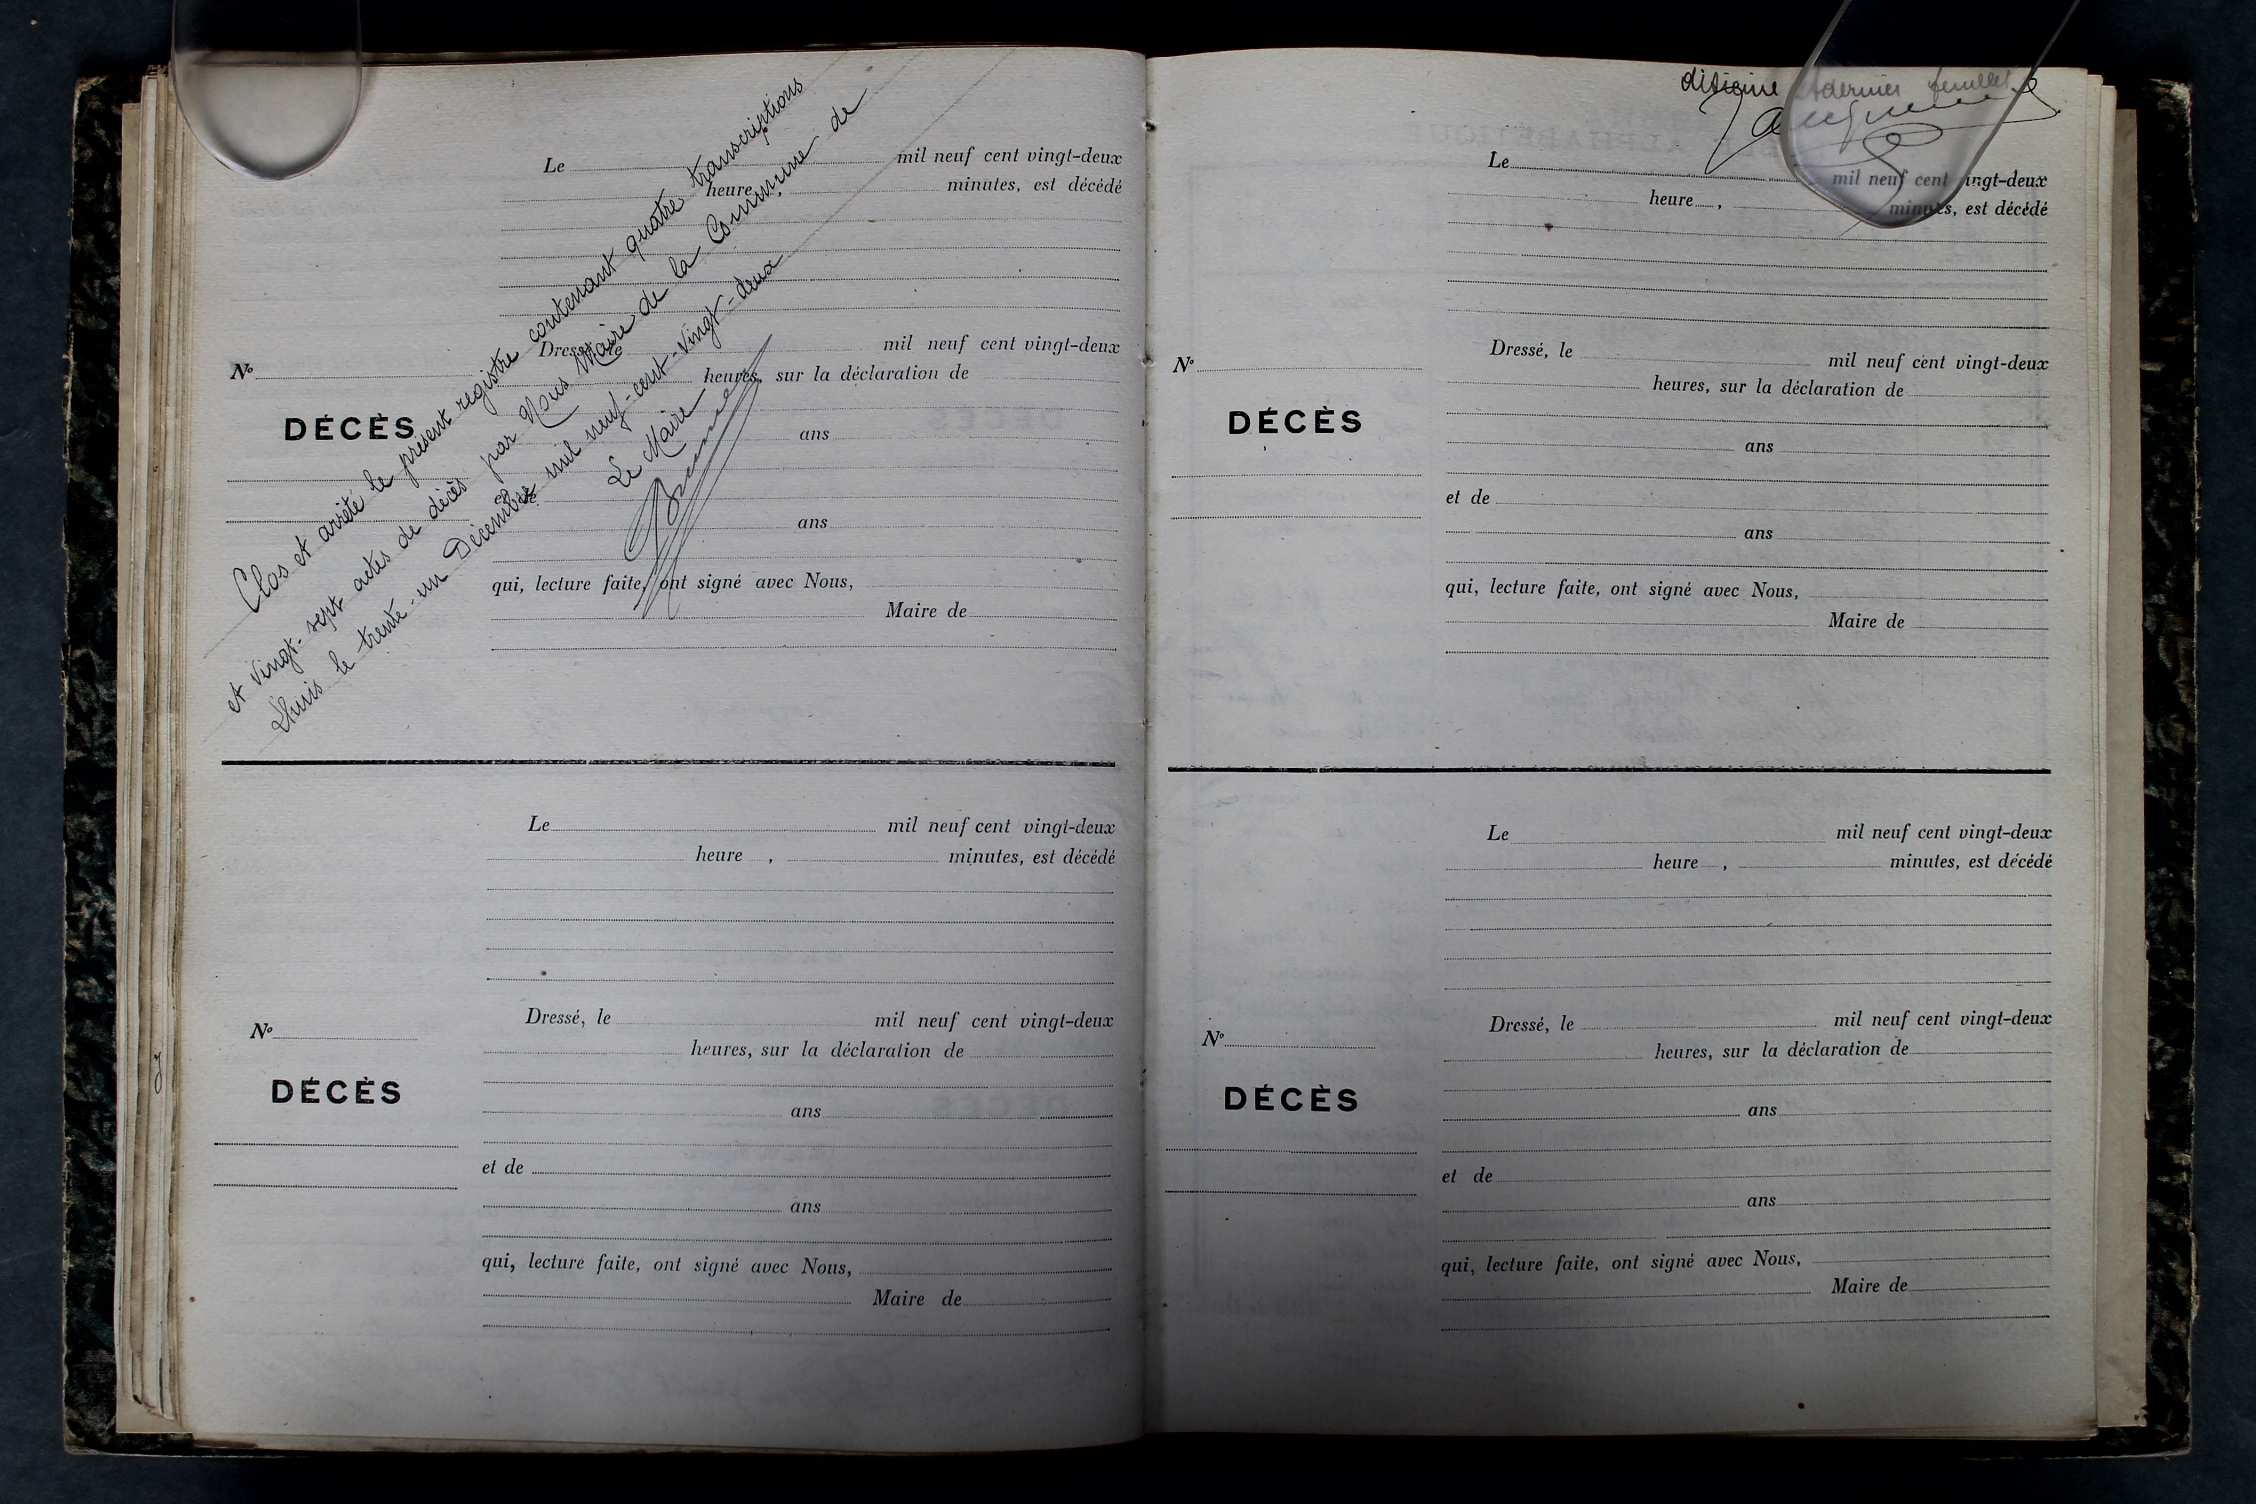 Clos et arrêté le présent registre contenant quatre transcriptions
et vingt-sept actes de décès par Nous Maire de la Commune de
Lhuis le trente-un Décembre mil neuf-cent-vingt-deux
Le Maire
Le mil neuf cent vingt-deux
heure , minutes, est décédé
Dressé, le mil neuf cent vingt-deux
heures, sur la déclaration de
ans
et de
ans
qui, lecture faite, ont signé avec Nous,
Maire de
Nº
DÉCÈS
Le mil neuf cent vingt-deux
heure , minutes, est décédé
Dressé, le mil neuf cent vingt-deux
heures, sur la déclaration de
ans
et de
ans
qui, lecture faite, ont signé avec Nous,
Maire de
Nº
DÉCÈS
dernier feuillet
Le mil neuf cent vingt-deux
heure , minutes, est décédé
Dressé, le mil neuf cent vingt-deux
heures, sur la déclaration de
ans
et de
ans
qui, lecture faite, ont signé avec Nous,
Maire de
Nº
DÉCÈS
Le mil neuf cent vingt-deux
heure , minutes, est décédé
Dressé, le mil neuf cent vingt-deux
heures, sur la déclaration de
ans
et de
ans
qui, lecture faite, ont signé avec Nous,
Maire de
Nº
DÉCÈS